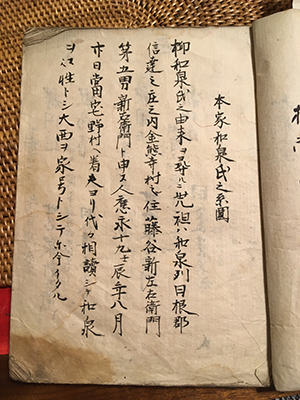 本家和泉氏之系圖
抑和泉氏之由来ヲ尋ルニ先祖ハ和泉列日根郡
信達之庄之内金熊寺村之住藤谷新左衛門
第五男新右衛門ト申ス人應永十九壬辰年八月
廿日當宅野村ヘ着夫ヨリ代々相續シテ和泉
ヲ以性トシ大西ヲ家号トシテ今イタル